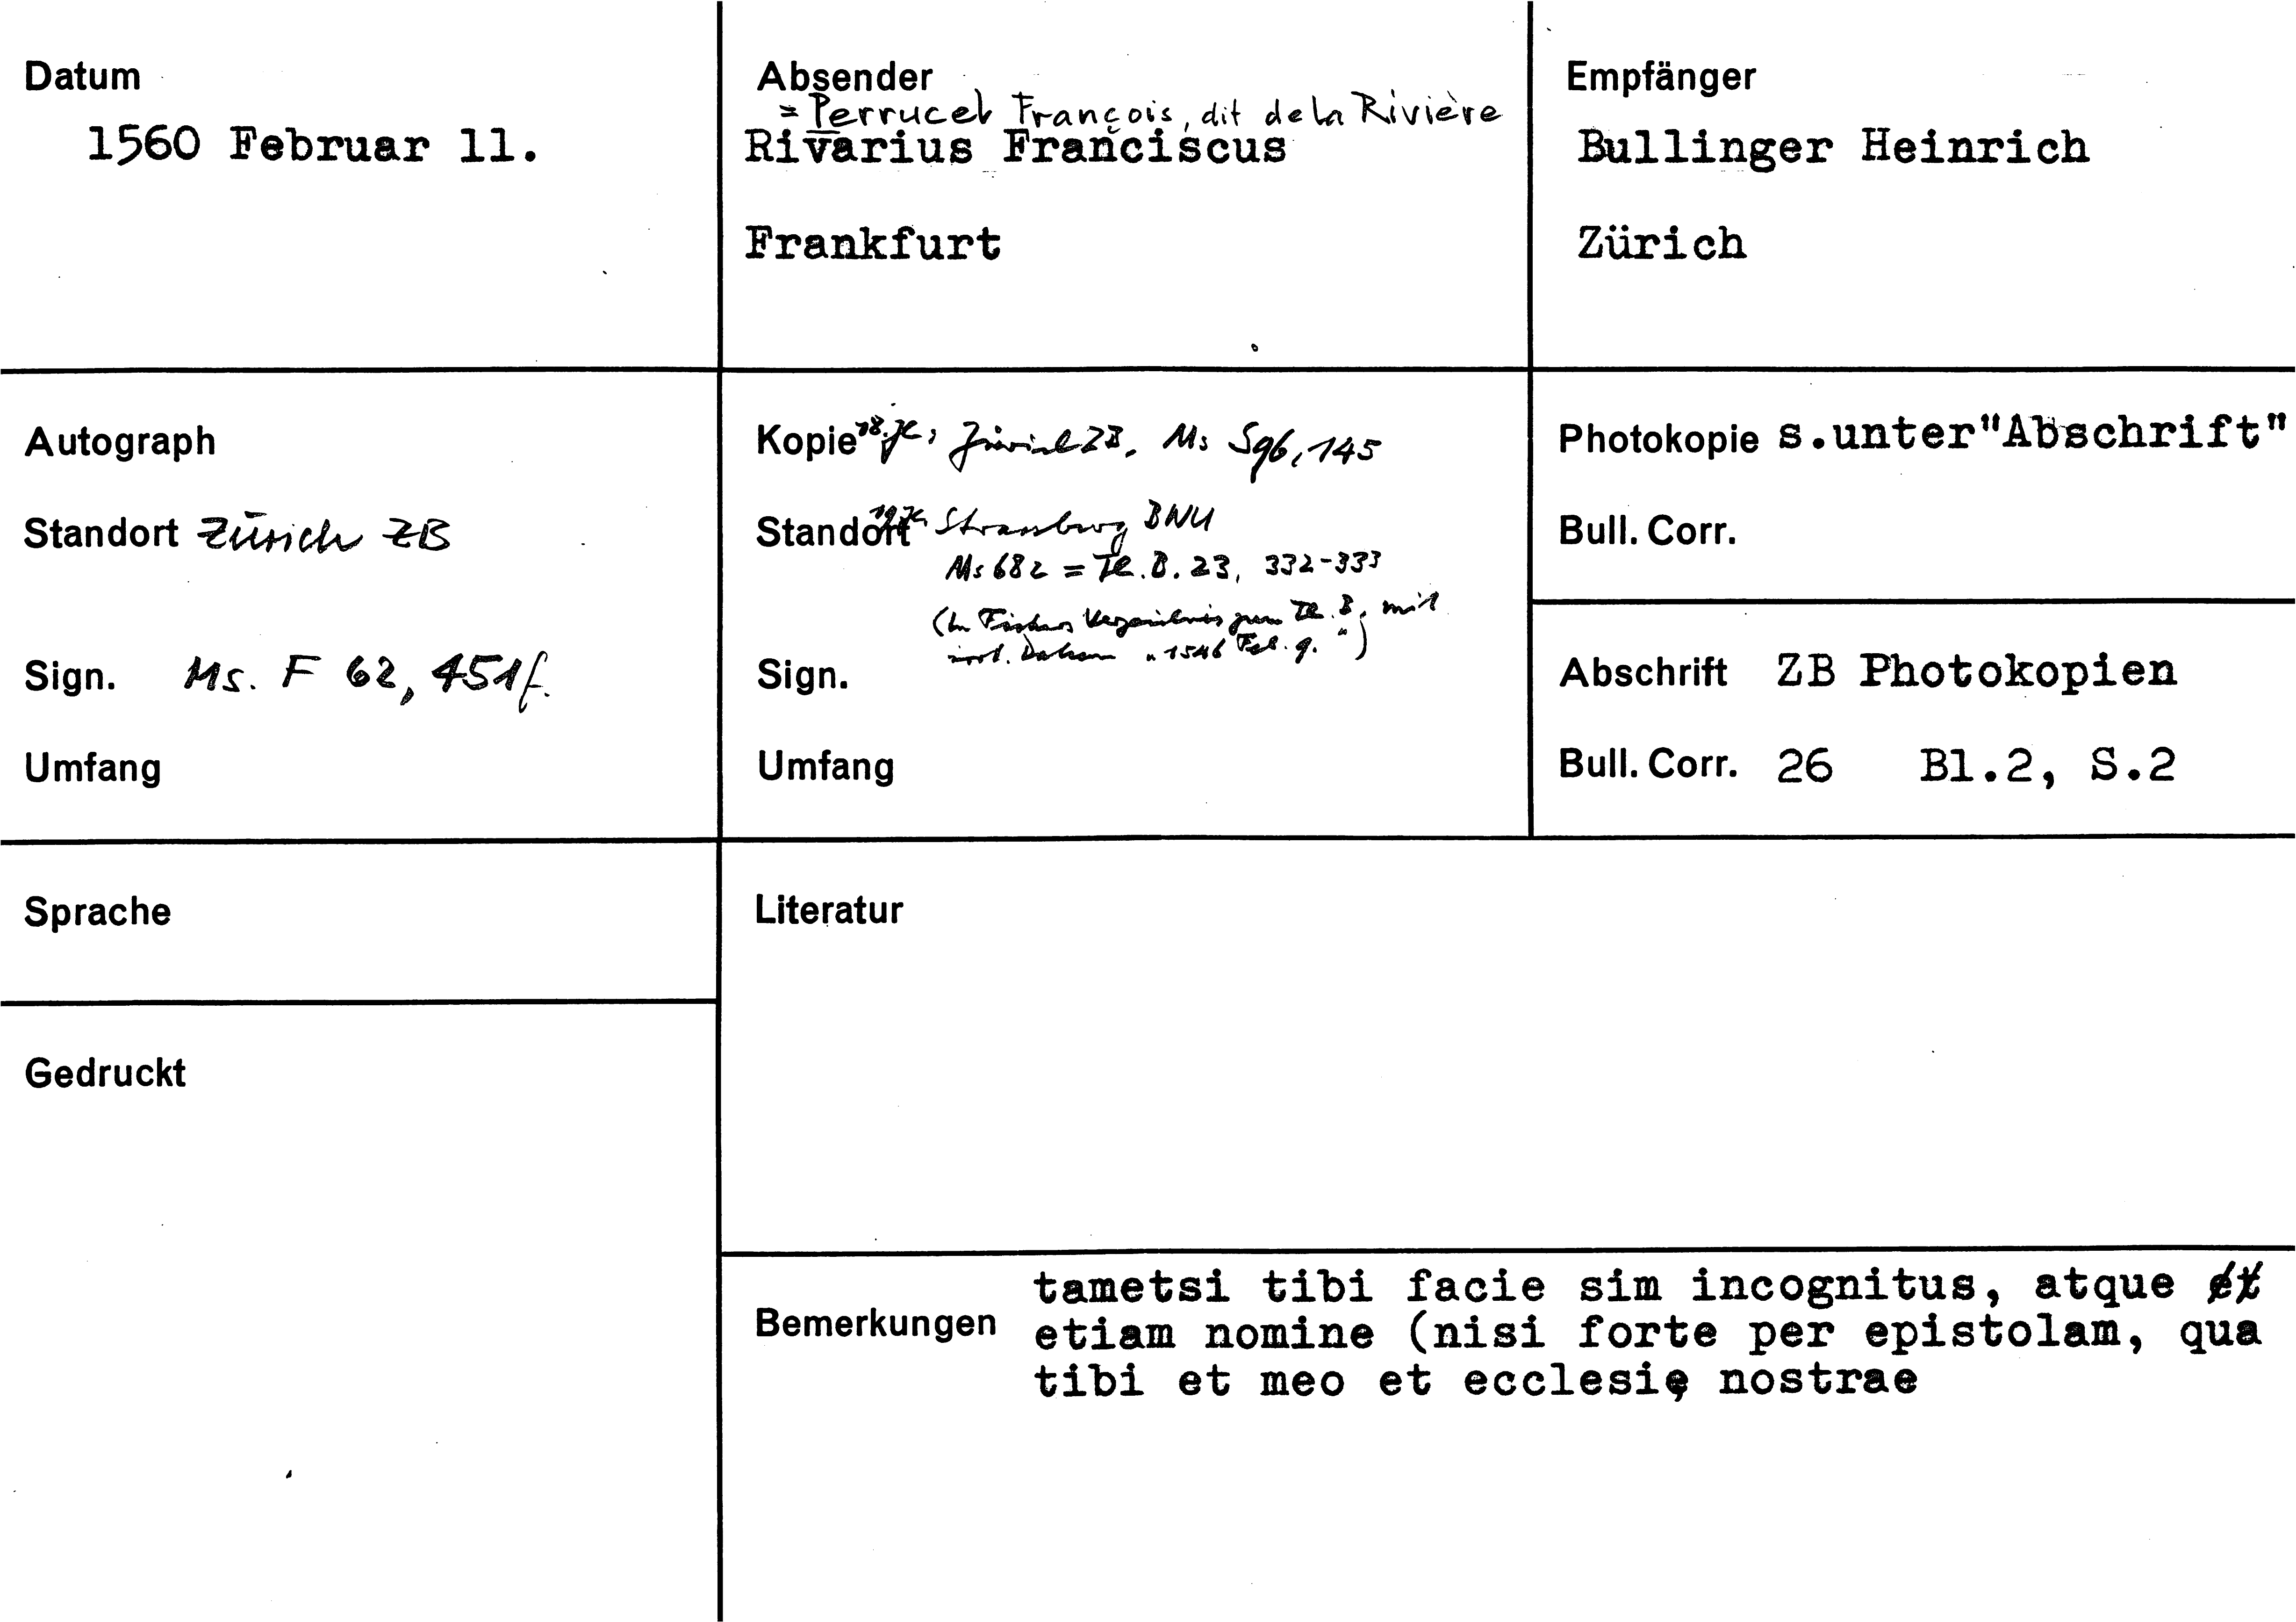 Datum
1560 Februar 11.
Absender
= Perrucel François, dit de la Rivière
Rivarius Franciscus
Frankfurt
Empfänger
Bullinger Heinrich
Zürich
Autograph
Standort Zürich ZB
Sign. Ms. F 62, 451f.
Umfang
Kopie 18. Jh, Zürich ZB, Ms S 96, 145
Standort 19. Jh Strassburg BNU
Ms 682 = Th. B. 23, 332-333
(In Fickers Verzeichnis zum Th. B. mit
Datum "1546 Feb. 9.")
Sign.
Umfang
Photokopie s.unter"Abschrift"
Bull. Corr.
Abschrift ZB Photokopien
Bull. Corr. 26 Bl.2, S.2
Sprache
Gedruckt
Literatur
Bemerkungen
tametsi tibi facie sim incognitus, atque et
etiam nomine (nisi forte per epistolam, qua
tibi et meo et ecclesię nostrae